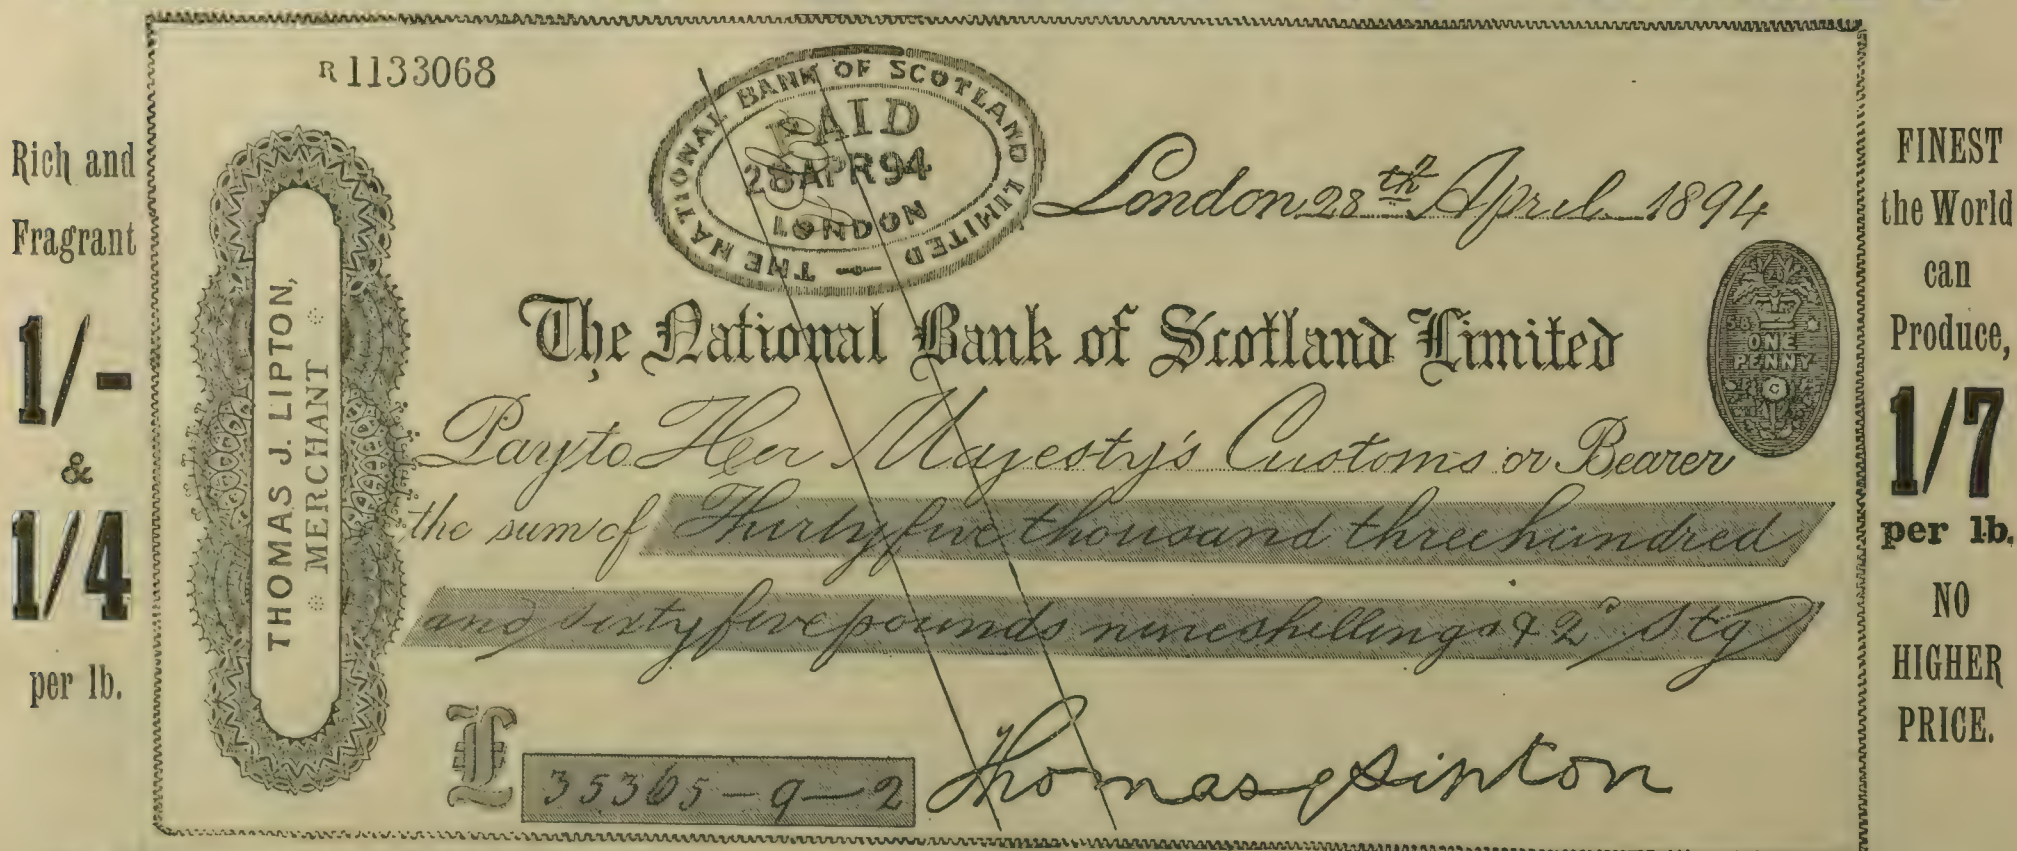 Rich and
Fragrant
1/-
&
1/4
per lb.
R 1133068
THE NATIONAL BANK OF SCOTLAND LIMITED
PAID
28 APR 94
LONDON
London 28th April 1894
THOMAS J. LIPTON,
MERCHANT
The National Bank of Scotland Limited
ONE
PENNY
Pay to Her Majesty's Customs or Bearer
the sum of Thirty five thousand three hundred
and sixty five pounds nine shillings & 2d Stg
£ 35365-9-2
Thomas J Lipton
FINEST
the World
can
Produce,
1/7
per lb.
NO
HIGHER
PRICE.